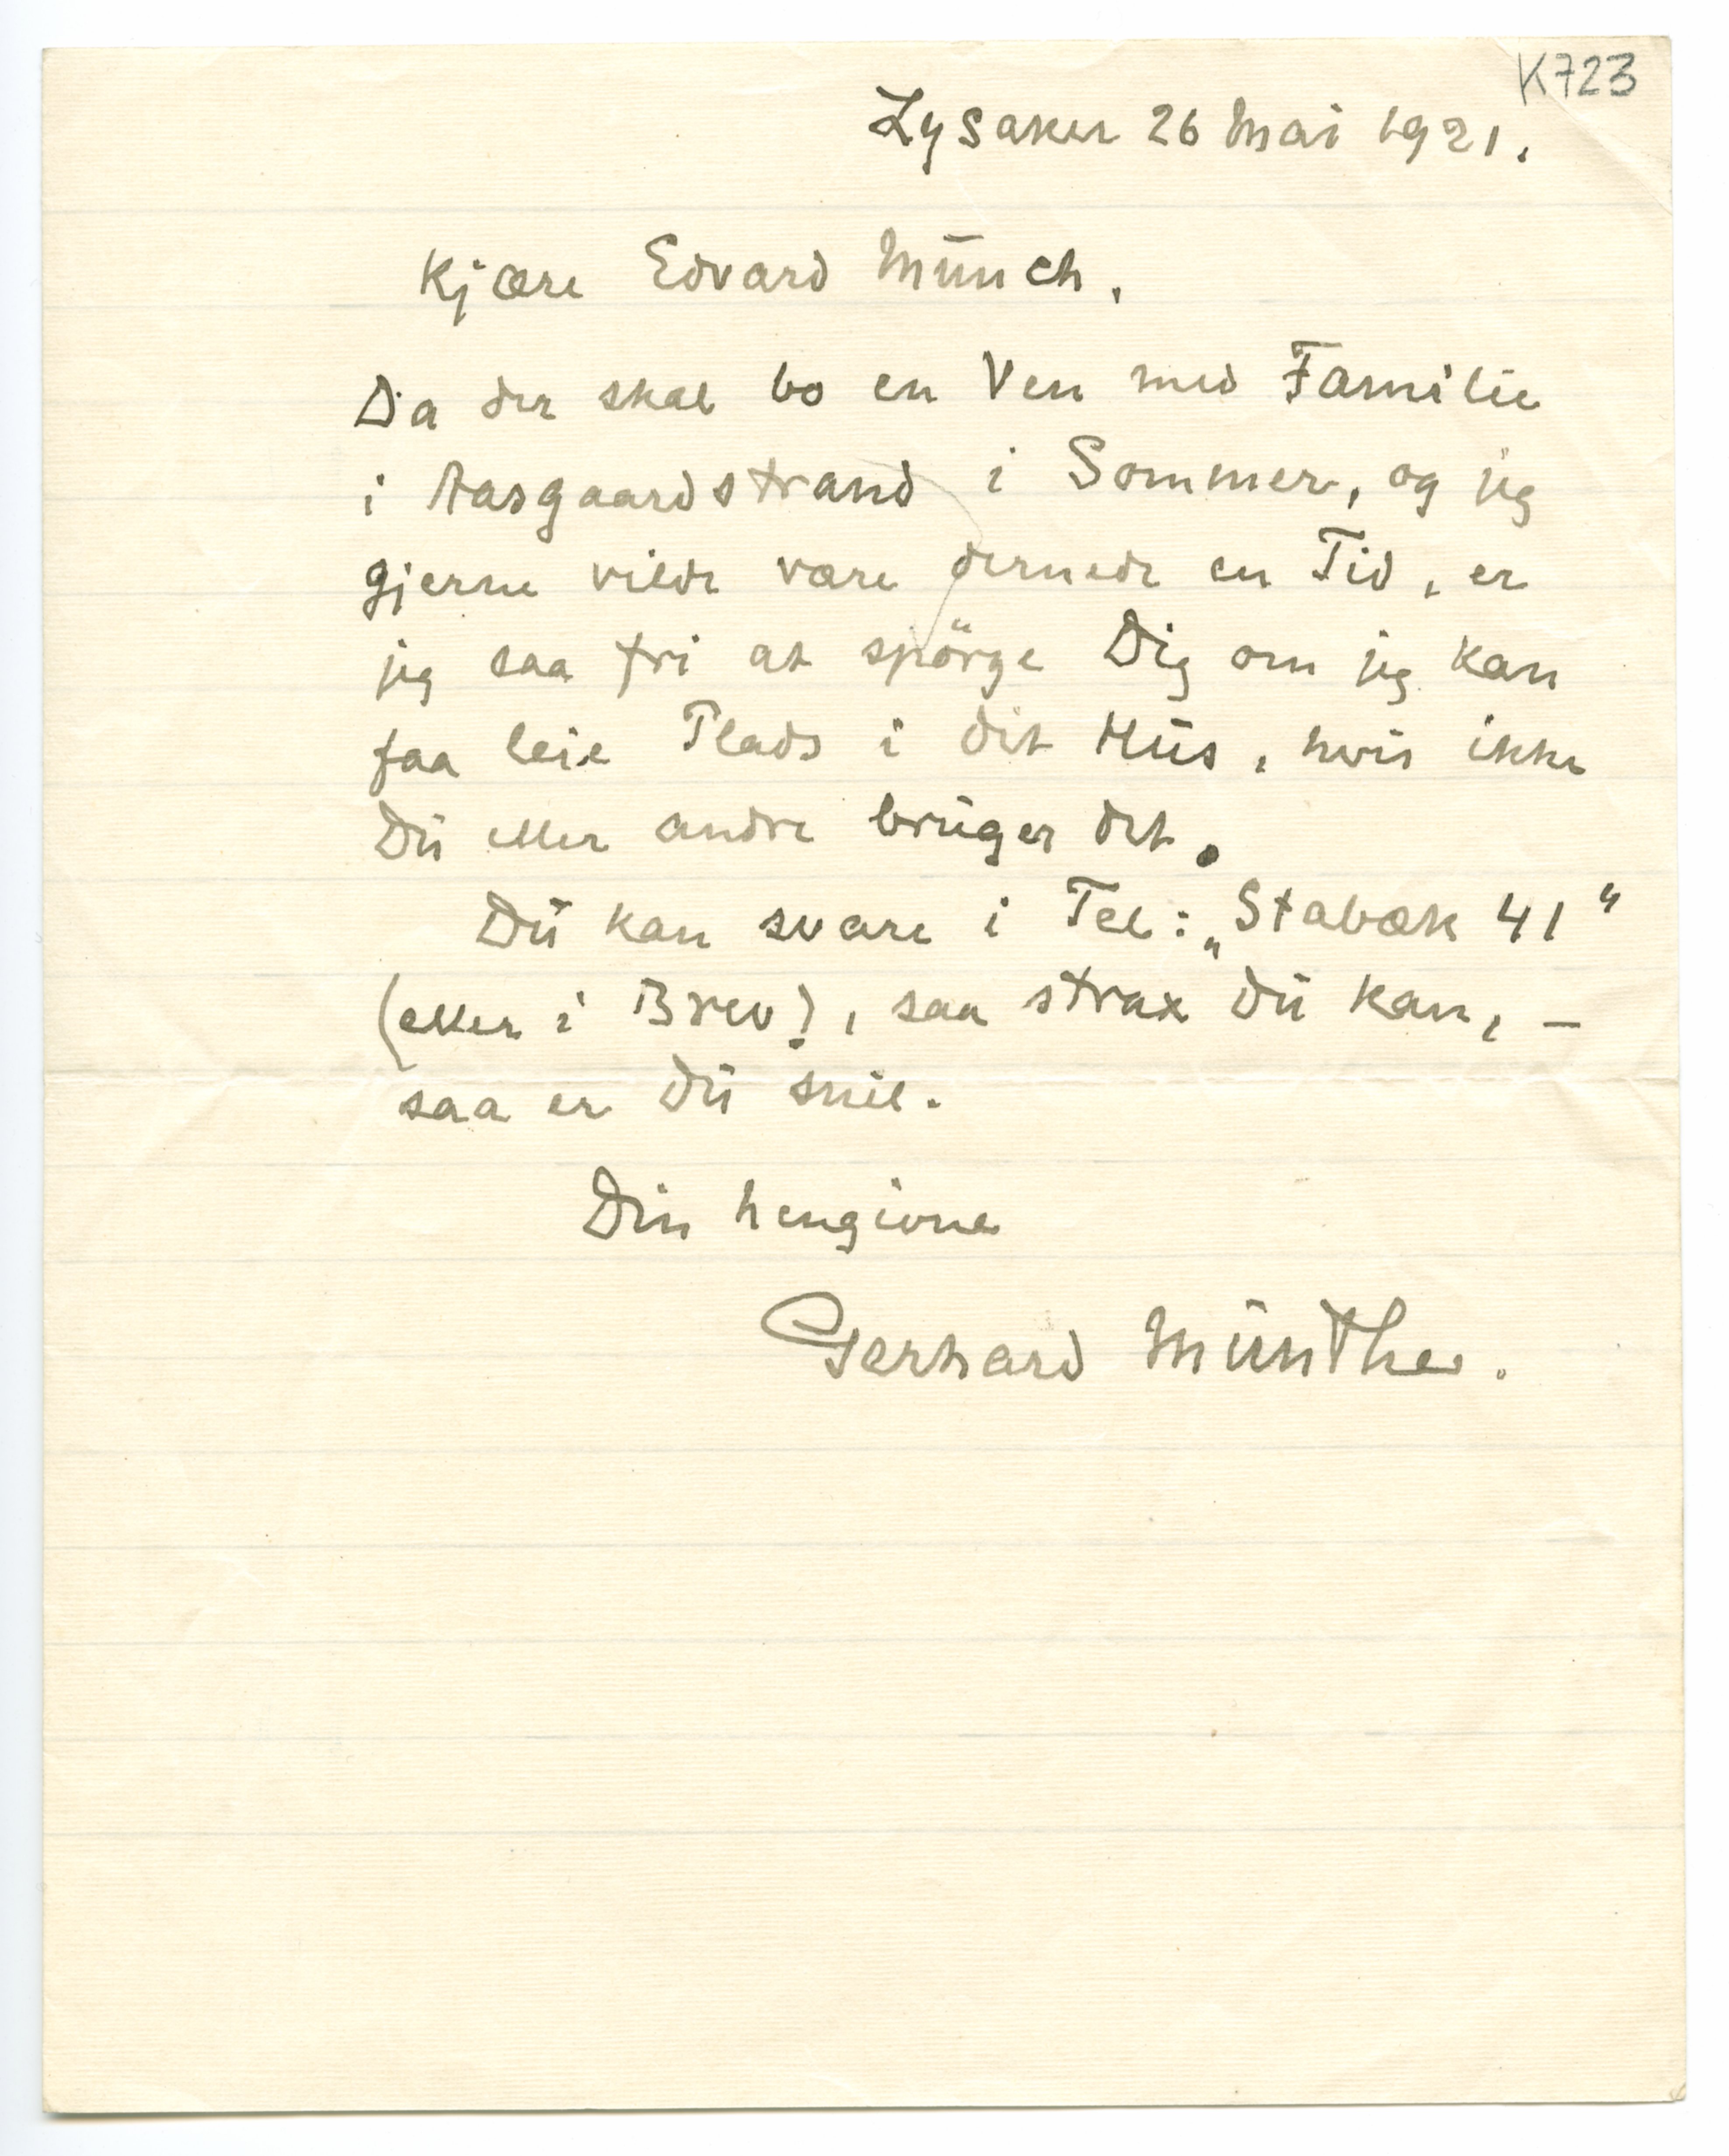 K723
Lysaker 26 Mai 1921.
Kjære Edvard Munch,
Da der skal bo en Ven med Familie
i Aasgaardstrand i Sommer, og jeg
gjerne vilde være dernede en Tid, er
jeg saa fri at spörge Dig om jeg kan
faa leie Plads i dit Hus, hvis ikke
Du eller andre bruger det.
Du kan svare i Tel: „Stabæk 41"
(eller i Brev), saa strax Du kan, –
saa er Du snil.
Din hengivne
Gerhard Munthe.